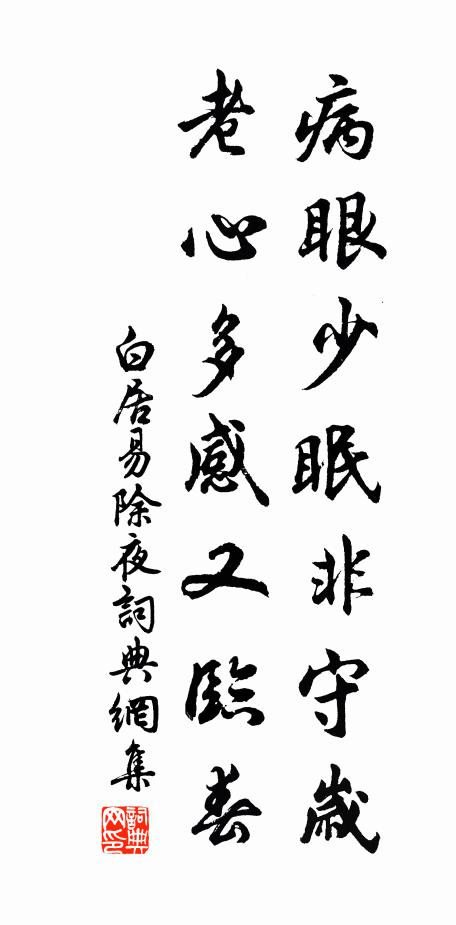 病眼少眠非守歲
老心多感又臨春
白居易除夜詞典網集
詞典網印